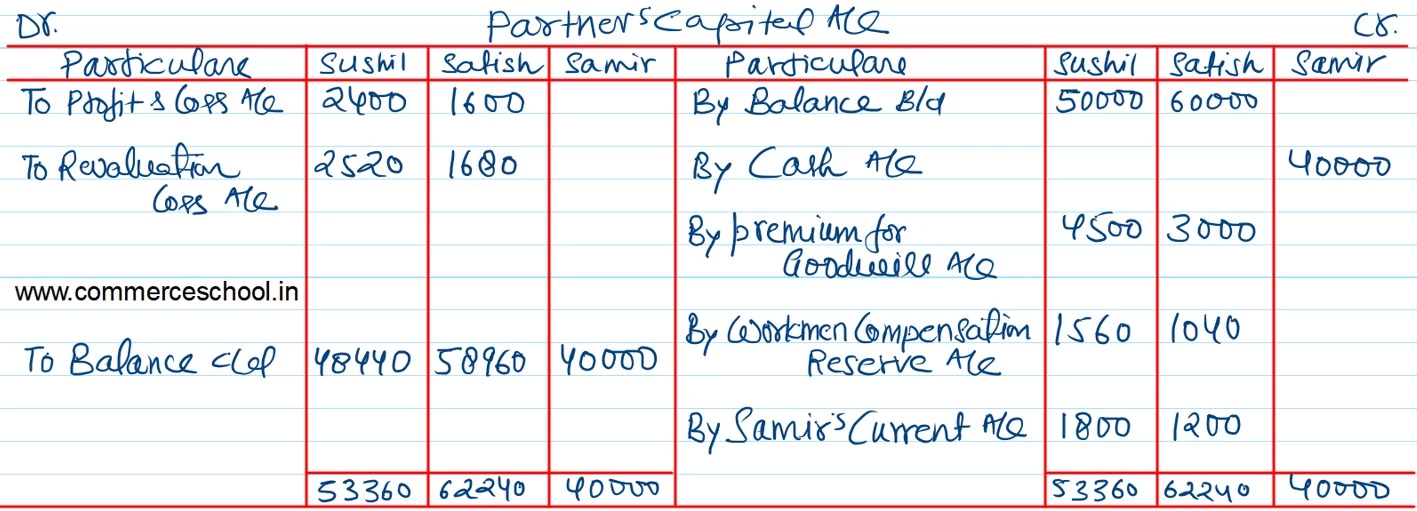 Dr. Partner's Capital A/c Cr.
Particulars Sushil Satish Samir Particulars Sushil Satish Samir
To Profit & Loss A/c 2400 1600 By Balance B/d 50000 60000
To Revaluation 2520 1680 By Cash A/c 40000
Loss A/c
By premium for 4500 3000
Goodwill A/c
www.commerceschool.in
By Workmen Compensation 1560 1040
To Balance c/d 48440 58960 40000 Reserve A/c
By Samir's Current A/c 1800 1200
53360 62240 40000 53360 62240 40000